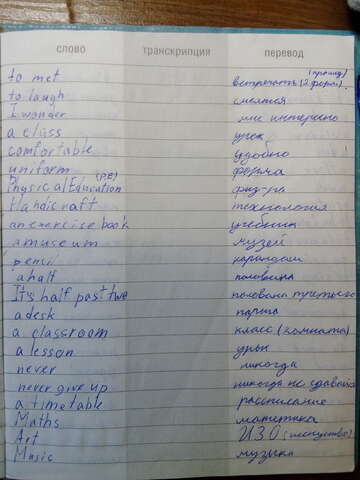 слово транскрипция перевод
to met встречать (2 форма) (прошед)
to laugh смеятся
I wonder мне интересно
a class урок
comfortable удобно
uniform форма
Physical Education (P.E) физ-ра
Handicraft технология
an exercise book учебник
a museum музей
pencil карандаш
a half половина
It's half past two половина третьего
a desk парта
a classroom класс (комната)
a lesson урок
never никогда
never give up никогда не сдавайся
a timetable расписание
Maths матетика
Art ИЗО (искуство)
Music музыка